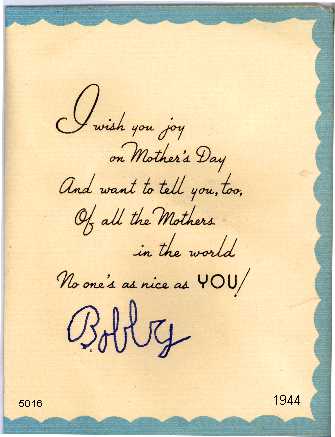 I wish you joy
on Mother's Day
And want to tell you, too,
Of all the Mothers
in the world
No one's as nice as YOU!
Bobby
5016
1944